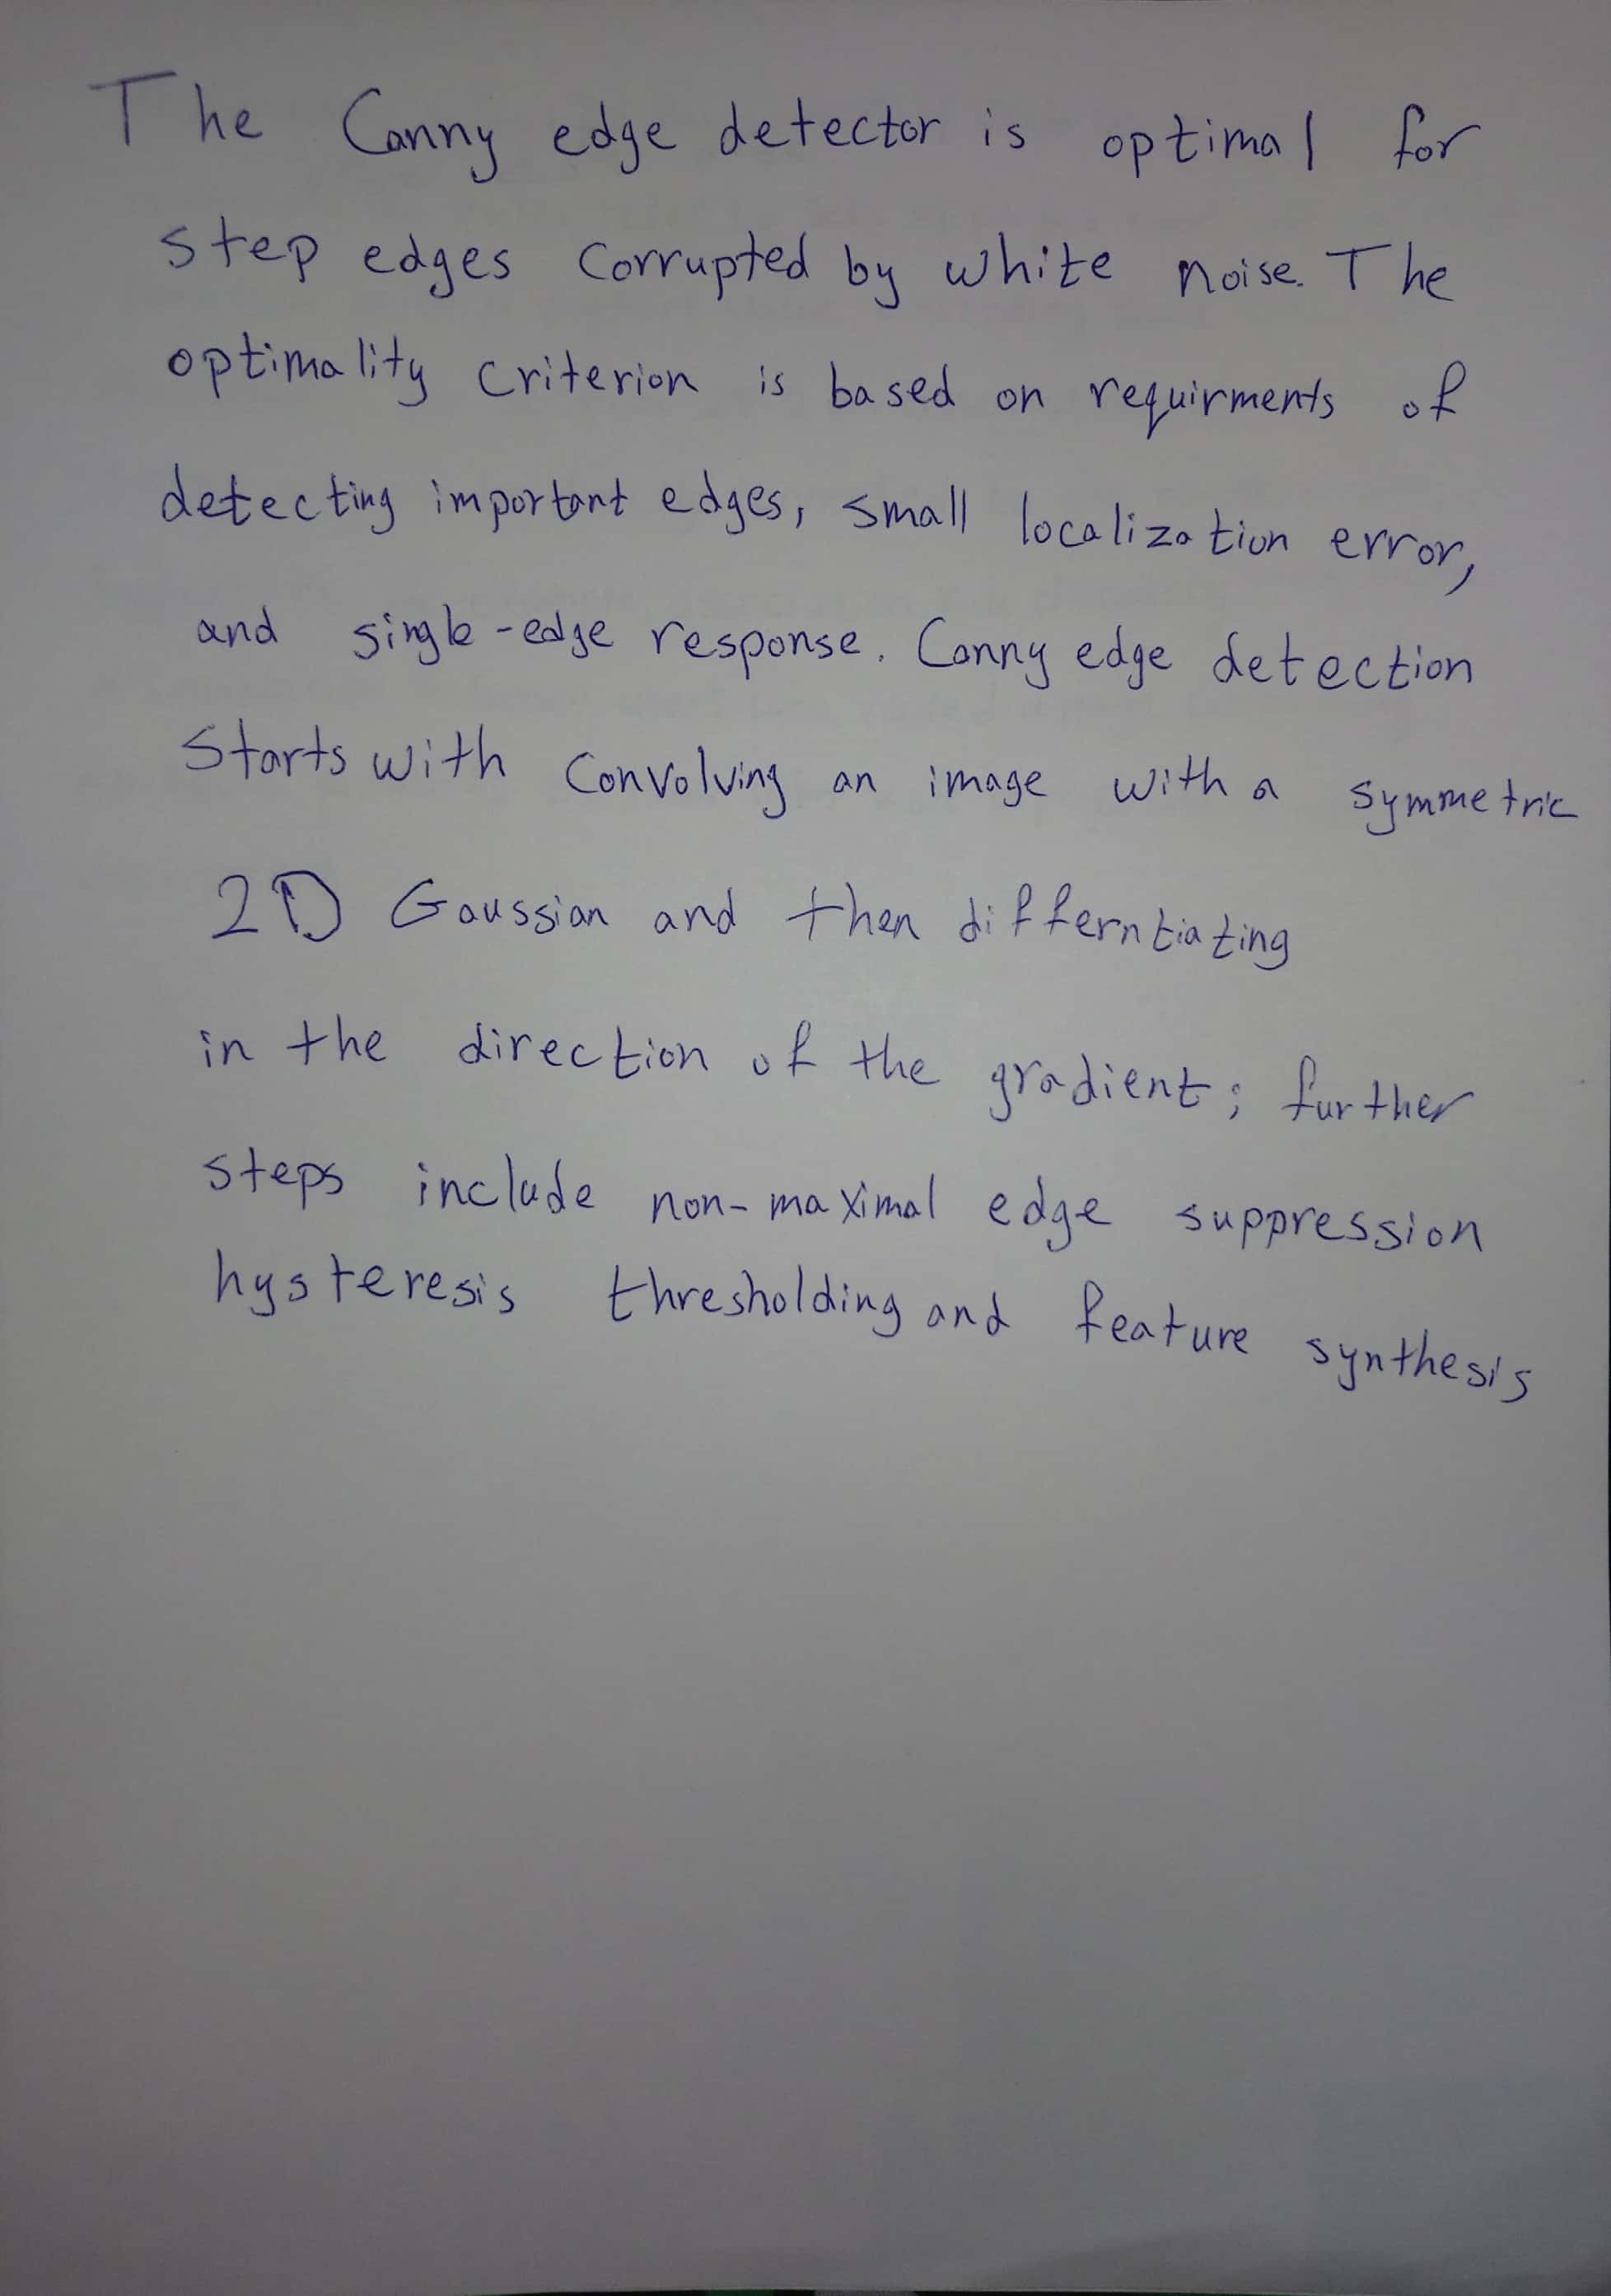 The Canny edge detector is optimal for
step edges corrupted by white noise. The
optimality criterion is based on requirments of
detecting important edges, small localization error,
and single-edge response. Canny edge detection
Starts with Convolving an image with a symmetric
2D Gaussian and then differntiating
in the direction of the gradient; further
steps include non-maximal edge suppression
hysteresis thresholding and feature synthesis